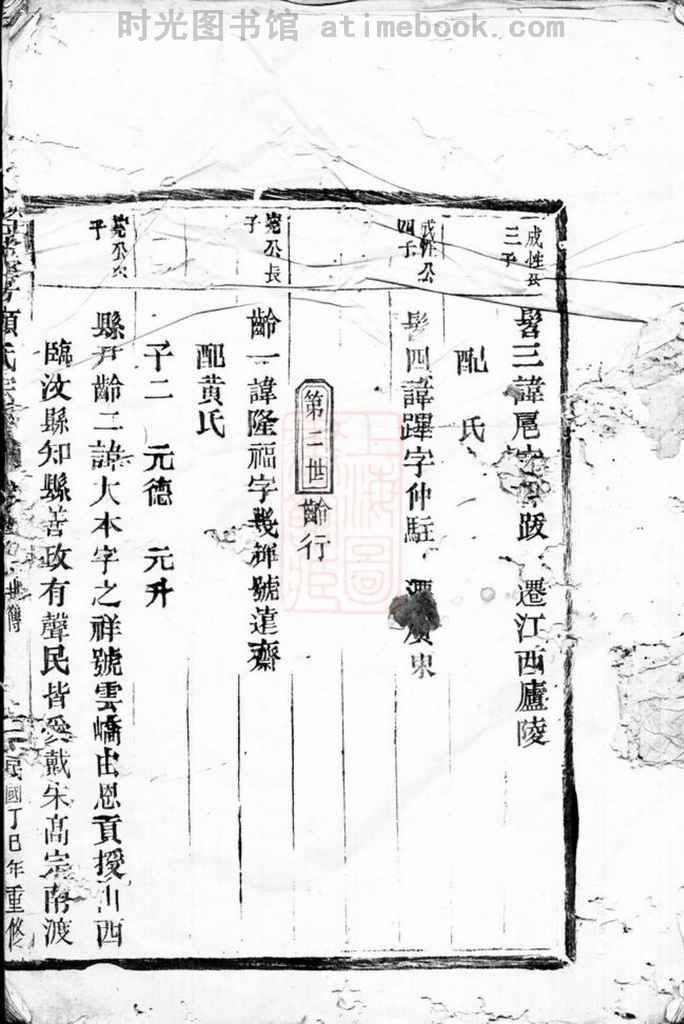 时光图书馆 atimebook.com
成性公三子
髫三諱尾字 跋 遷江西廬陵
配 氏
成性公四子
髫四諱躍字仲駐 遷廣東
第二世 齡行
公長子
齡一諱隆福字幾祥號蓮齋
配黃氏
子二 元德 元升
公次子
齡二諱大本字之祥號雲嶠由恩貢授山西
縣尹
臨汝縣知縣善政有聲民皆愛戴宋高宗南渡
氏
世傳
民國丁巳年重修